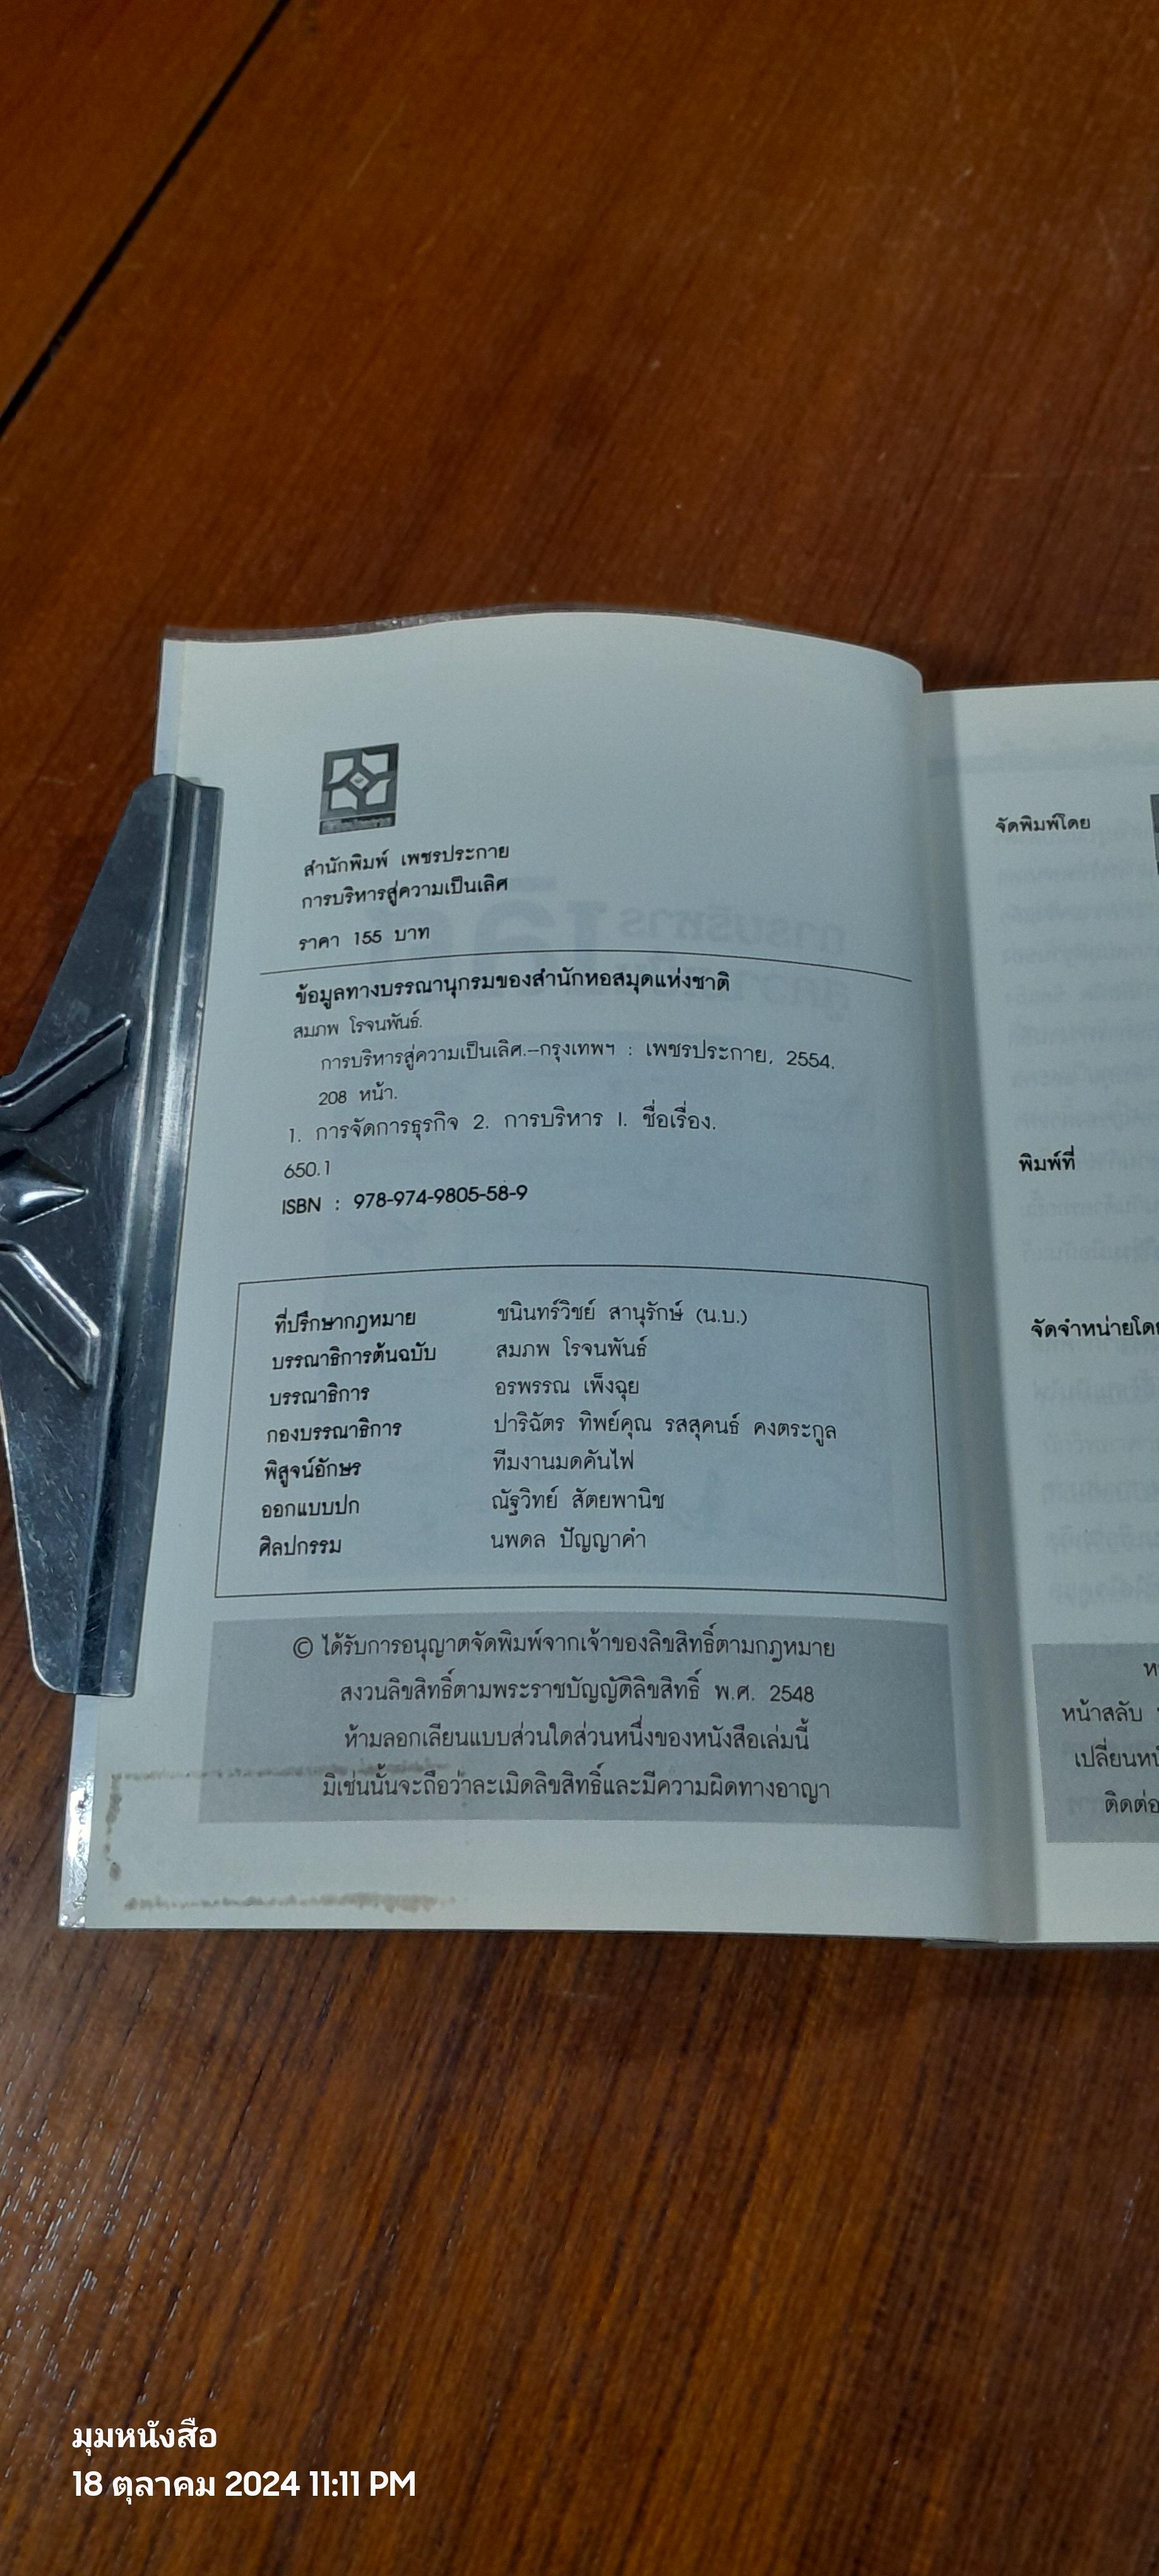 สำนักพิมพ์ เพชรประกาย
การบริหารสู่ความเป็นเลิศ
ราคา 155 บาท
ข้อมูลทางบรรณานุกรมของสำนักหอสมุดแห่งชาติ
สมภพ โรจนพันธ์.
การบริหารสู่ความเป็นเลิศ.--กรุงเทพฯ : เพชรประกาย, 2554.
208 หน้า.
1. การจัดการธุรกิจ 2. การบริหาร I. ชื่อเรื่อง.
650.1
ISBN : 978-974-9805-58-9
ที่ปรึกษากฎหมาย ชนินทร์วิชย์ สานุรักษ์ (น.บ.)
บรรณาธิการต้นฉบับ สมภพ โรจนพันธ์
บรรณาธิการ อรพรรณ เพ็งฉุย
กองบรรณาธิการ ปาริฉัตร ทิพย์คุณ รสสุคนธ์ คงตระกูล
พิสูจน์อักษร ทีมงานมดคันไฟ
ออกแบบปก ณัฐวิทย์ สัตยพานิช
ศิลปกรรม นพดล ปัญญาคำ
© ได้รับการอนุญาตจัดพิมพ์จากเจ้าของลิขสิทธิ์ตามกฎหมาย
สงวนลิขสิทธิ์ตามพระราชบัญญัติลิขสิทธิ์ พ.ศ. 2548
ห้ามลอกเลียนแบบส่วนใดส่วนหนึ่งของหนังสือเล่มนี้
มิเช่นนั้นจะถือว่าละเมิดลิขสิทธิ์และมีความผิดทางอาญา
จัดพิมพ์โดย
พิมพ์ที่
จัดจำหน่ายโดย
หน้าสลับ
ติดต่อ
มุมหนังสือ
18 ตุลาคม 2024 11:11 PM